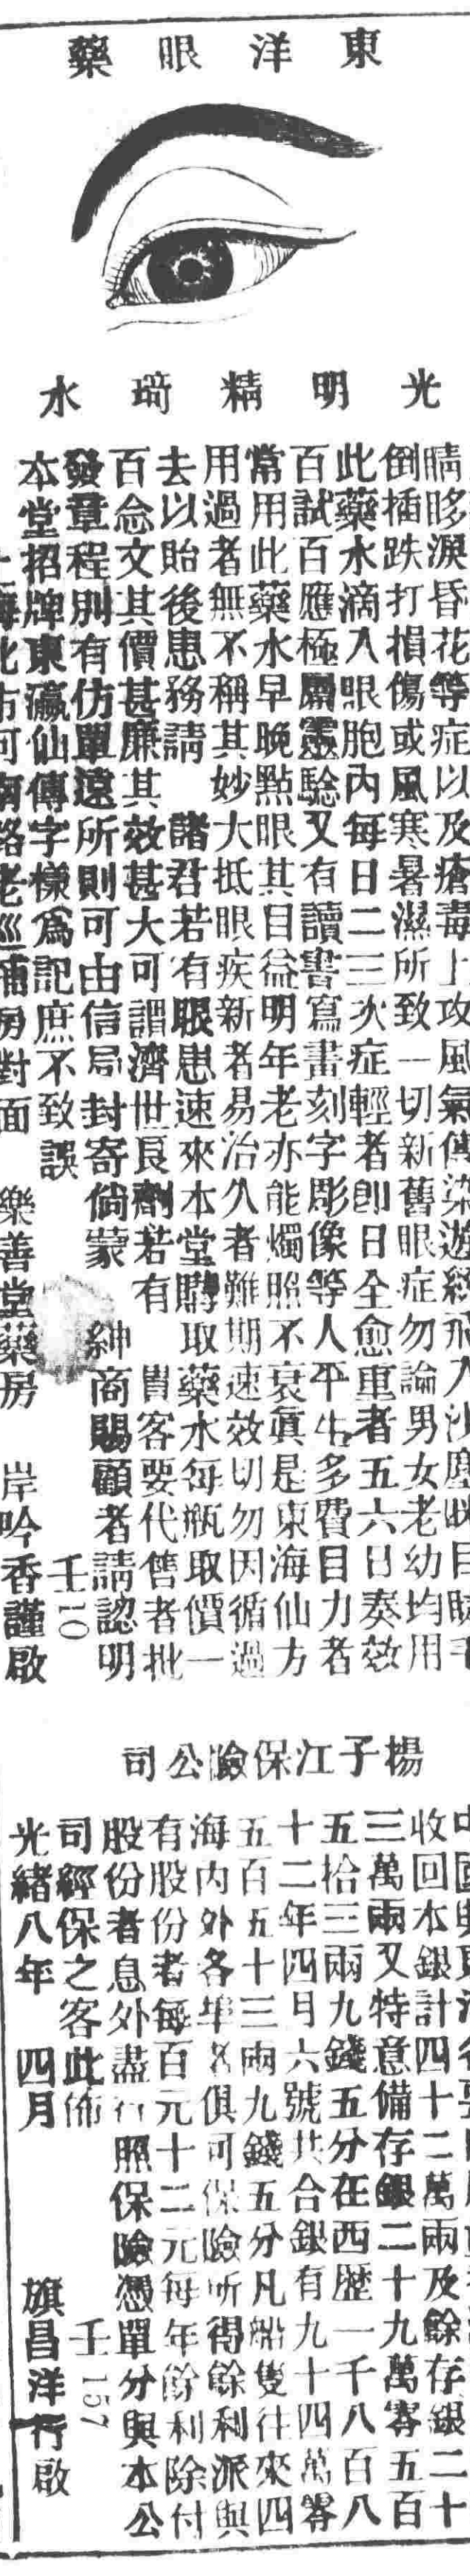 東洋眼藥
光明精𤨪水
睛眵淚昏花等症以及瘡毒上攻風氣傳染遊絲飛入沙塵眯目睫毛
倒插跌打損傷或風寒暑濕所致一切新舊眼症勿論男女老幼均用
此藥水滴入眼胞內每日二三次症輕者即日全愈重者五六日奏效
百試百應極屬靈騐又有讀書寫畫刻字彫像等人平生多費目力者
常用此藥水早晚點眼其目益明年老亦能燭照不衰眞是東海仙方
用過者無不稱其妙大抵眼疾新者易治久者難期速效切勿因循過
去以貽後患務請 諸君若有眼患速來本堂購取藥水每瓶取價一
百念文其價甚廉其效甚大可謂濟世良劑若有 貴客要代售者批
發章程別有仿單遠所則可由信局封寄倘蒙 紳商賜顧者請認明
本堂招牌東瀛仙傳字樣為記庶不致誤 壬10
上海北市河南路老巡捕房對面 樂善堂藥房 岸吟香謹啟
揚子江保險公司
收回本銀計四十二萬兩及餘存銀二十
三萬兩又特意備存銀二十九萬零五百
五拾三兩九錢五分在西歷一千八百八
十二年四月六號共合銀有九十四萬零
五百五十三兩九錢五分凡船隻往來四
海內外各埠名俱可保險所得餘利派與
有股份者每百元十二元每年餘利除付
股份者息外盡行照保險憑單分與本公
司經保之客此佈 壬157
光緒八年 四月 旗昌洋行啟